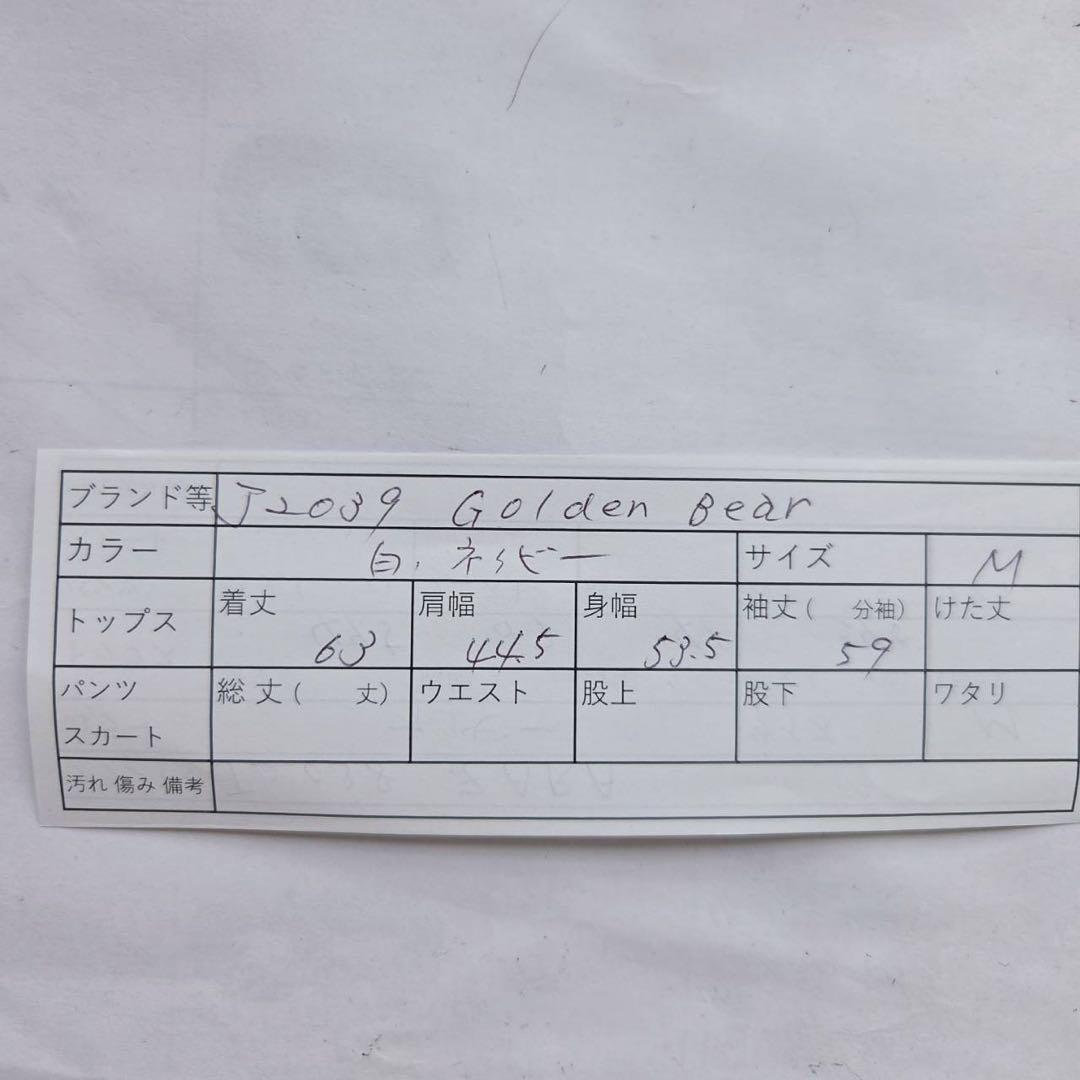 ブランド等 J2039 Golden Bear
カラー 白、ネイビー サイズ M
トップス 着丈 63 肩幅 44.5 身幅 53.5 袖丈( 分袖) 59 けた丈
パンツ スカート 総丈( 丈) ウエスト 股上 股下 ワタリ
汚れ 傷み 備考